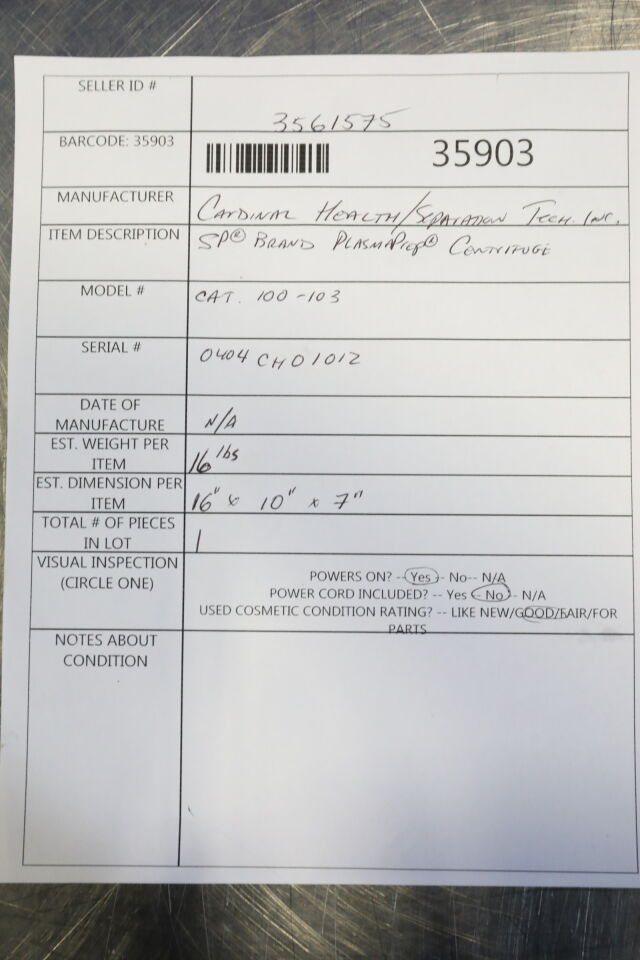 SELLER ID #
3561575
BARCODE: 35903
35903
MANUFACTURER
CARDINAL HEALTH/SEPARATION TECH. INC.
ITEM DESCRIPTION
SP® BRAND PLASMAPREP® CENTRIFUGE
MODEL #
CAT. 100-103
SERIAL #
0404 CH01012
DATE OF
MANUFACTURE
N/A
EST. WEIGHT PER
ITEM
16 lbs
EST. DIMENSION PER
ITEM
16" x 10" x 7"
TOTAL # OF PIECES
IN LOT
1
VISUAL INSPECTION
(CIRCLE ONE)
POWERS ON? --Yes-- No-- N/A
POWER CORD INCLUDED? -- Yes -- No-- N/A
USED COSMETIC CONDITION RATING? -- LIKE NEW/GOOD/FAIR/FOR
PARTS
NOTES ABOUT
CONDITION